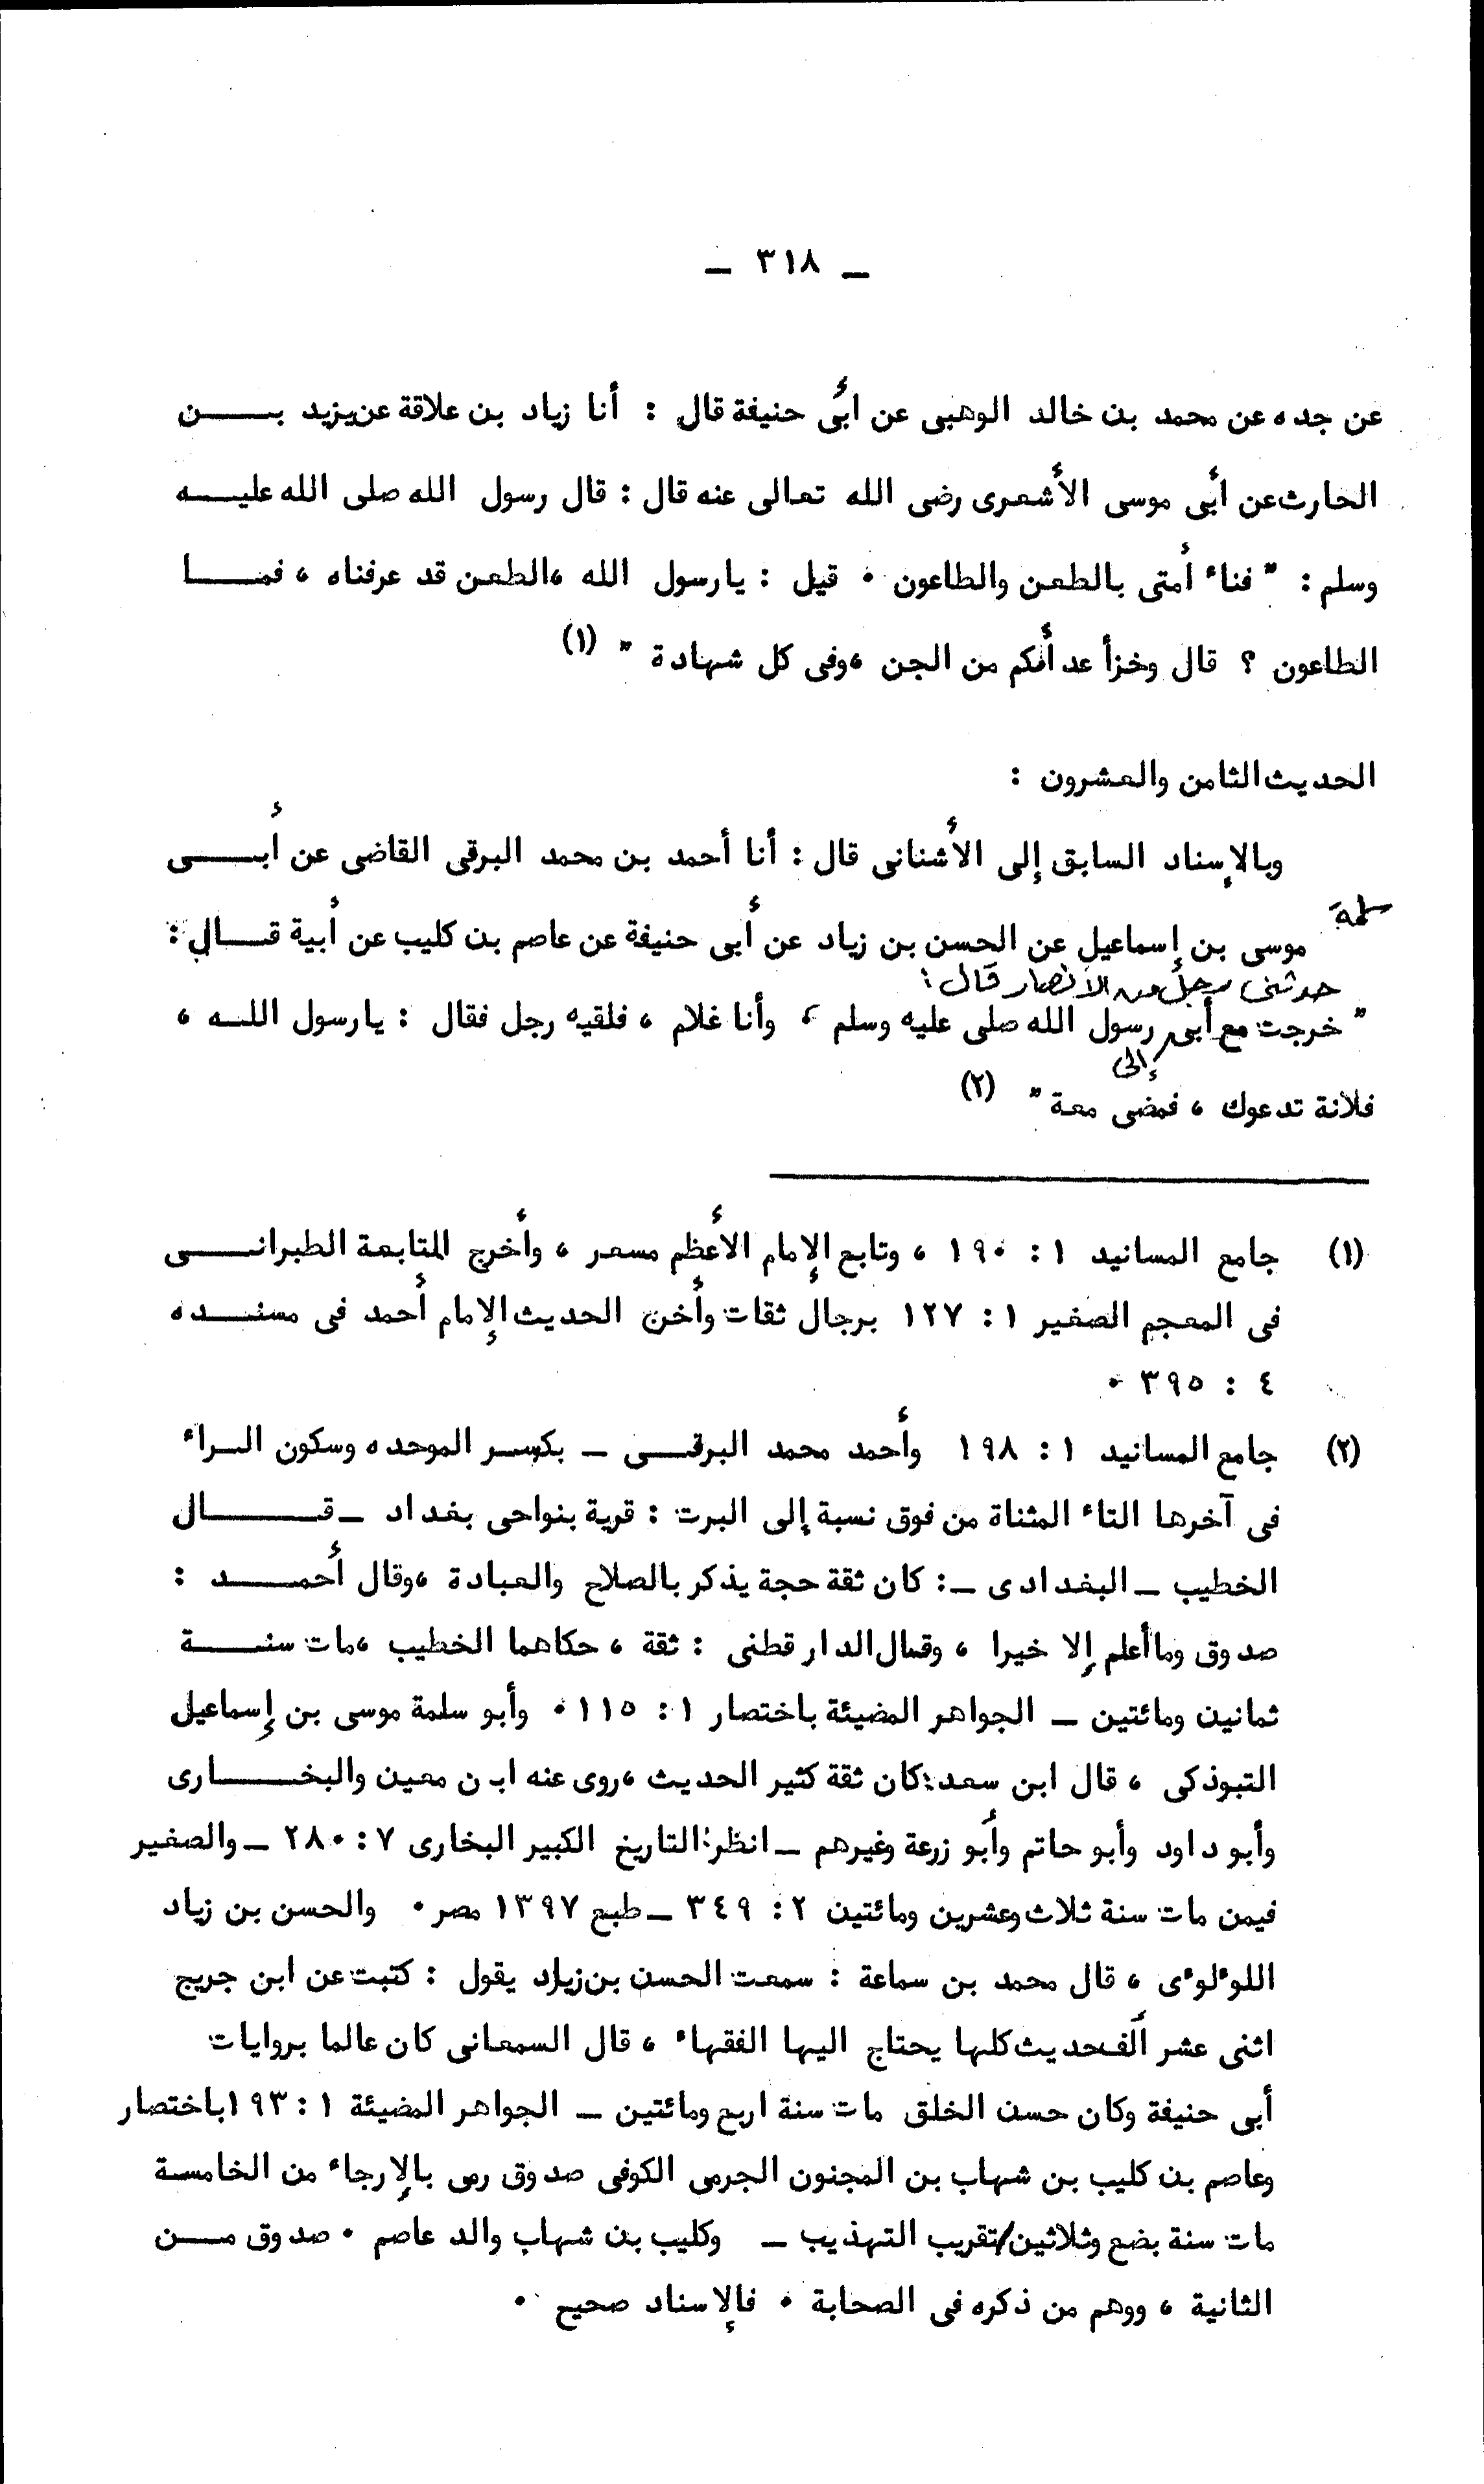 ـ ٣١٨ ـ
عن جده عن محمد بن خالد الوهبى عن أبى حنيفة قال : أنا زياد بن علاقة عن يزيد بـــن
الحارث عن أبى موسى الأشعرى رضى الله تعالى عنه قال : قال رسول الله صلى الله عليــه
وسلم : " فناء أمتى بالطعن والطاعون ٠ قيل : يارسول الله ، الطعن قد عرفناه ، فمـــا
الطاعون ؟ قال وخزأ عدأئكم من الجن ، وفى كل شهادة " (١)
الحديث الثامن والعشرون :
وبالإسناد السابق إلى الأشنانى قال : أنا أحمد بن محمد البرقى القاضى عن أبـــى
سلمة
موسى بن إسماعيل عن الحسن بن زياد عن أبى حنيفة عن عاصم بن كليب عن أبية قــال :
حدثنى رجل من الأنصار قال :
" خرجت مع أبى رسول الله صلى عليه وسلم ، وأنا غلام ، فلقيه رجل فقال : يارسول اللــه ،
إلى
فلانة تدعوك ، فمضى معة " (٢)
(١) جامع المسانيد ١ : ١٩٠ ، وتابع الإمام الأعظم مسعر ، وأخرج المتابعة الطبرانـــى
فى المعجم الصغير ١ : ١٢٧ برجال ثقات وأخرج الحديث الإمام أحمد فى مسنـــده
٤ : ٣٩٥ ٠
(٢) جامع المسانيد ١ : ١٩٨ وأحمد محمد البرقــى ـ بكسـر الموحده وسكون الــراء
فى آخرها التاء المثناة من فوق نسبة إلى البرت : قرية بنواحى بغداد ـ قـــــال
الخطيب ـ البغدادى ـ : كان ثقة حجة يذكر بالصلاح والعبادة ، وقال أحمـــد :
صدوق وما أعلم إلا خيرا ، وقال الدارقطنى : ثقة ، حكاهما الخطيب ، مات سنـــة
ثمانين ومائتين ـ الجواهر المضيئة باختصار ١ : ١١٥ ٠ وأبو سلمة موسى بن إسماعيل
التبوذكى ، قال ابن سعد : كان ثقة كثير الحديث ، روى عنه ابن معين والبخــــارى
وأبو داود وأبو حاتم وأبو زرعة وغيرهم ـ انظر : التاريخ الكبير البخارى ٧ : ٢٨٠ ـ والصغير
فيمن مات سنة ثلاث وعشرين ومائتين ٢ : ٣٤٩ ـ طبع ١٣٩٧ مصر ٠ والحسن بن زياد
اللوءلوءى ، قال محمد بن سماعة : سمعت الحسن بن زياد يقول : كتبت عن ابن جريج
اثنى عشر ألف حديث كلها يحتاج اليها الفقهاء ، قال السمعانى كان عالما بروايات
أبى حنيفة وكان حسن الخلق مات سنة اربع ومائتين ـ الجواهر المضيئة ١ : ١٩٣ باختصار
وعاصم بن كليب بن شهاب بن المجنون الجرمى الكوفى صدوق رمى بالإرجاء من الخامسة
مات سنة بضع وثلاثين/تقريب التهذيب ـ وكليب بن شهاب والد عاصم ٠ صدوق مـــن
الثانية ، ووهم من ذكره فى الصحابة ٠ فالإسناد صحيح ٠